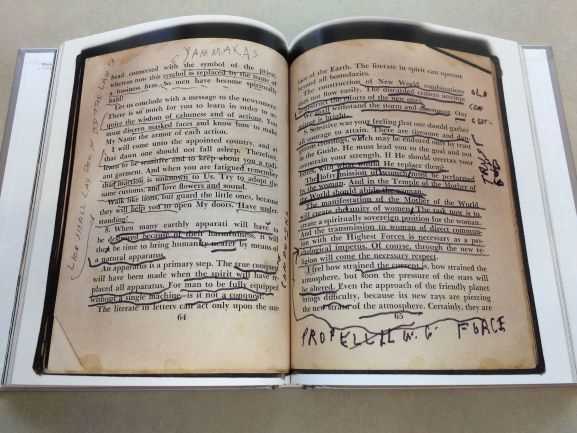 YAMMAKAS
head connected with the symbol of the priest,
whereas now this symbol is replaced by the home of
a business firm—so men have become spiritually
Let us conclude with a message to the newcomers:
There is so much for you to learn in order to ac-
quire the wisdom of calmness and of action. You
must discern masked faces and know how to make
My Name the armor of each action.
I will come unto the appointed country, and at
that dawn one should not fall asleep. Therefore,
learn to be sensitive and to keep about you a tidi-
ness and garment. And when you are fatigued remember
that inertia is unknown to Us. Try to adopt the
same customs, and love flowers and sound.
Walk like lions, but guard the little ones, because
they will help you to open My doors. Have under-
standing!
8. When many earthly apparati will have to
be destroyed because of their harmfulness, it will
then be time to bring humanity nearer by means of
a natural apparatus.
An apparatus is a primary step. The true conquest
will have been made when the spirit will have re-
placed all apparatus. For man to be fully equipped
without a single machine—is it not a conquest!
The literate in letters can act only upon the sur-
64
face of the Earth. The literate in spirit can operate
beyond all boundaries.
The construction of New World combinations
does not flow easily. The discarded centers attempt
to obstruct the efforts of the new ones.
We shall withstand the storm and downpour. Our
mirror is bright.
Selective was your feeling that one should gather
all courage to attain. There are tiresome and dan-
gerous crossings, which may be endured only by trust
in the Guide. He must lead you to the goal and not
overstrain your strength. If He should overtax your
forces, with what should He replace them?
The lofty mission of women must be performed
by the woman. And in the Temple of the Mother of
the World should abide the woman.
The manifestation of the Mother of the World
will create the unity of women. The task now is to
create a spiritually sovereign position for the woman.
And the transmission to woman of direct commun-
ion with the Highest Forces is necessary as a psy-
chological impetus. Of course, through the new re-
ligion will come the necessary respect.
I feel how strained the current is, how strained the
atmosphere, but soon the pressure of the stars will
be altered. Even the approach of the friendly planet
brings difficulty, because its new rays are piercing
the new strata of the atmosphere. Certainly, they are
65
OLD
FORCE